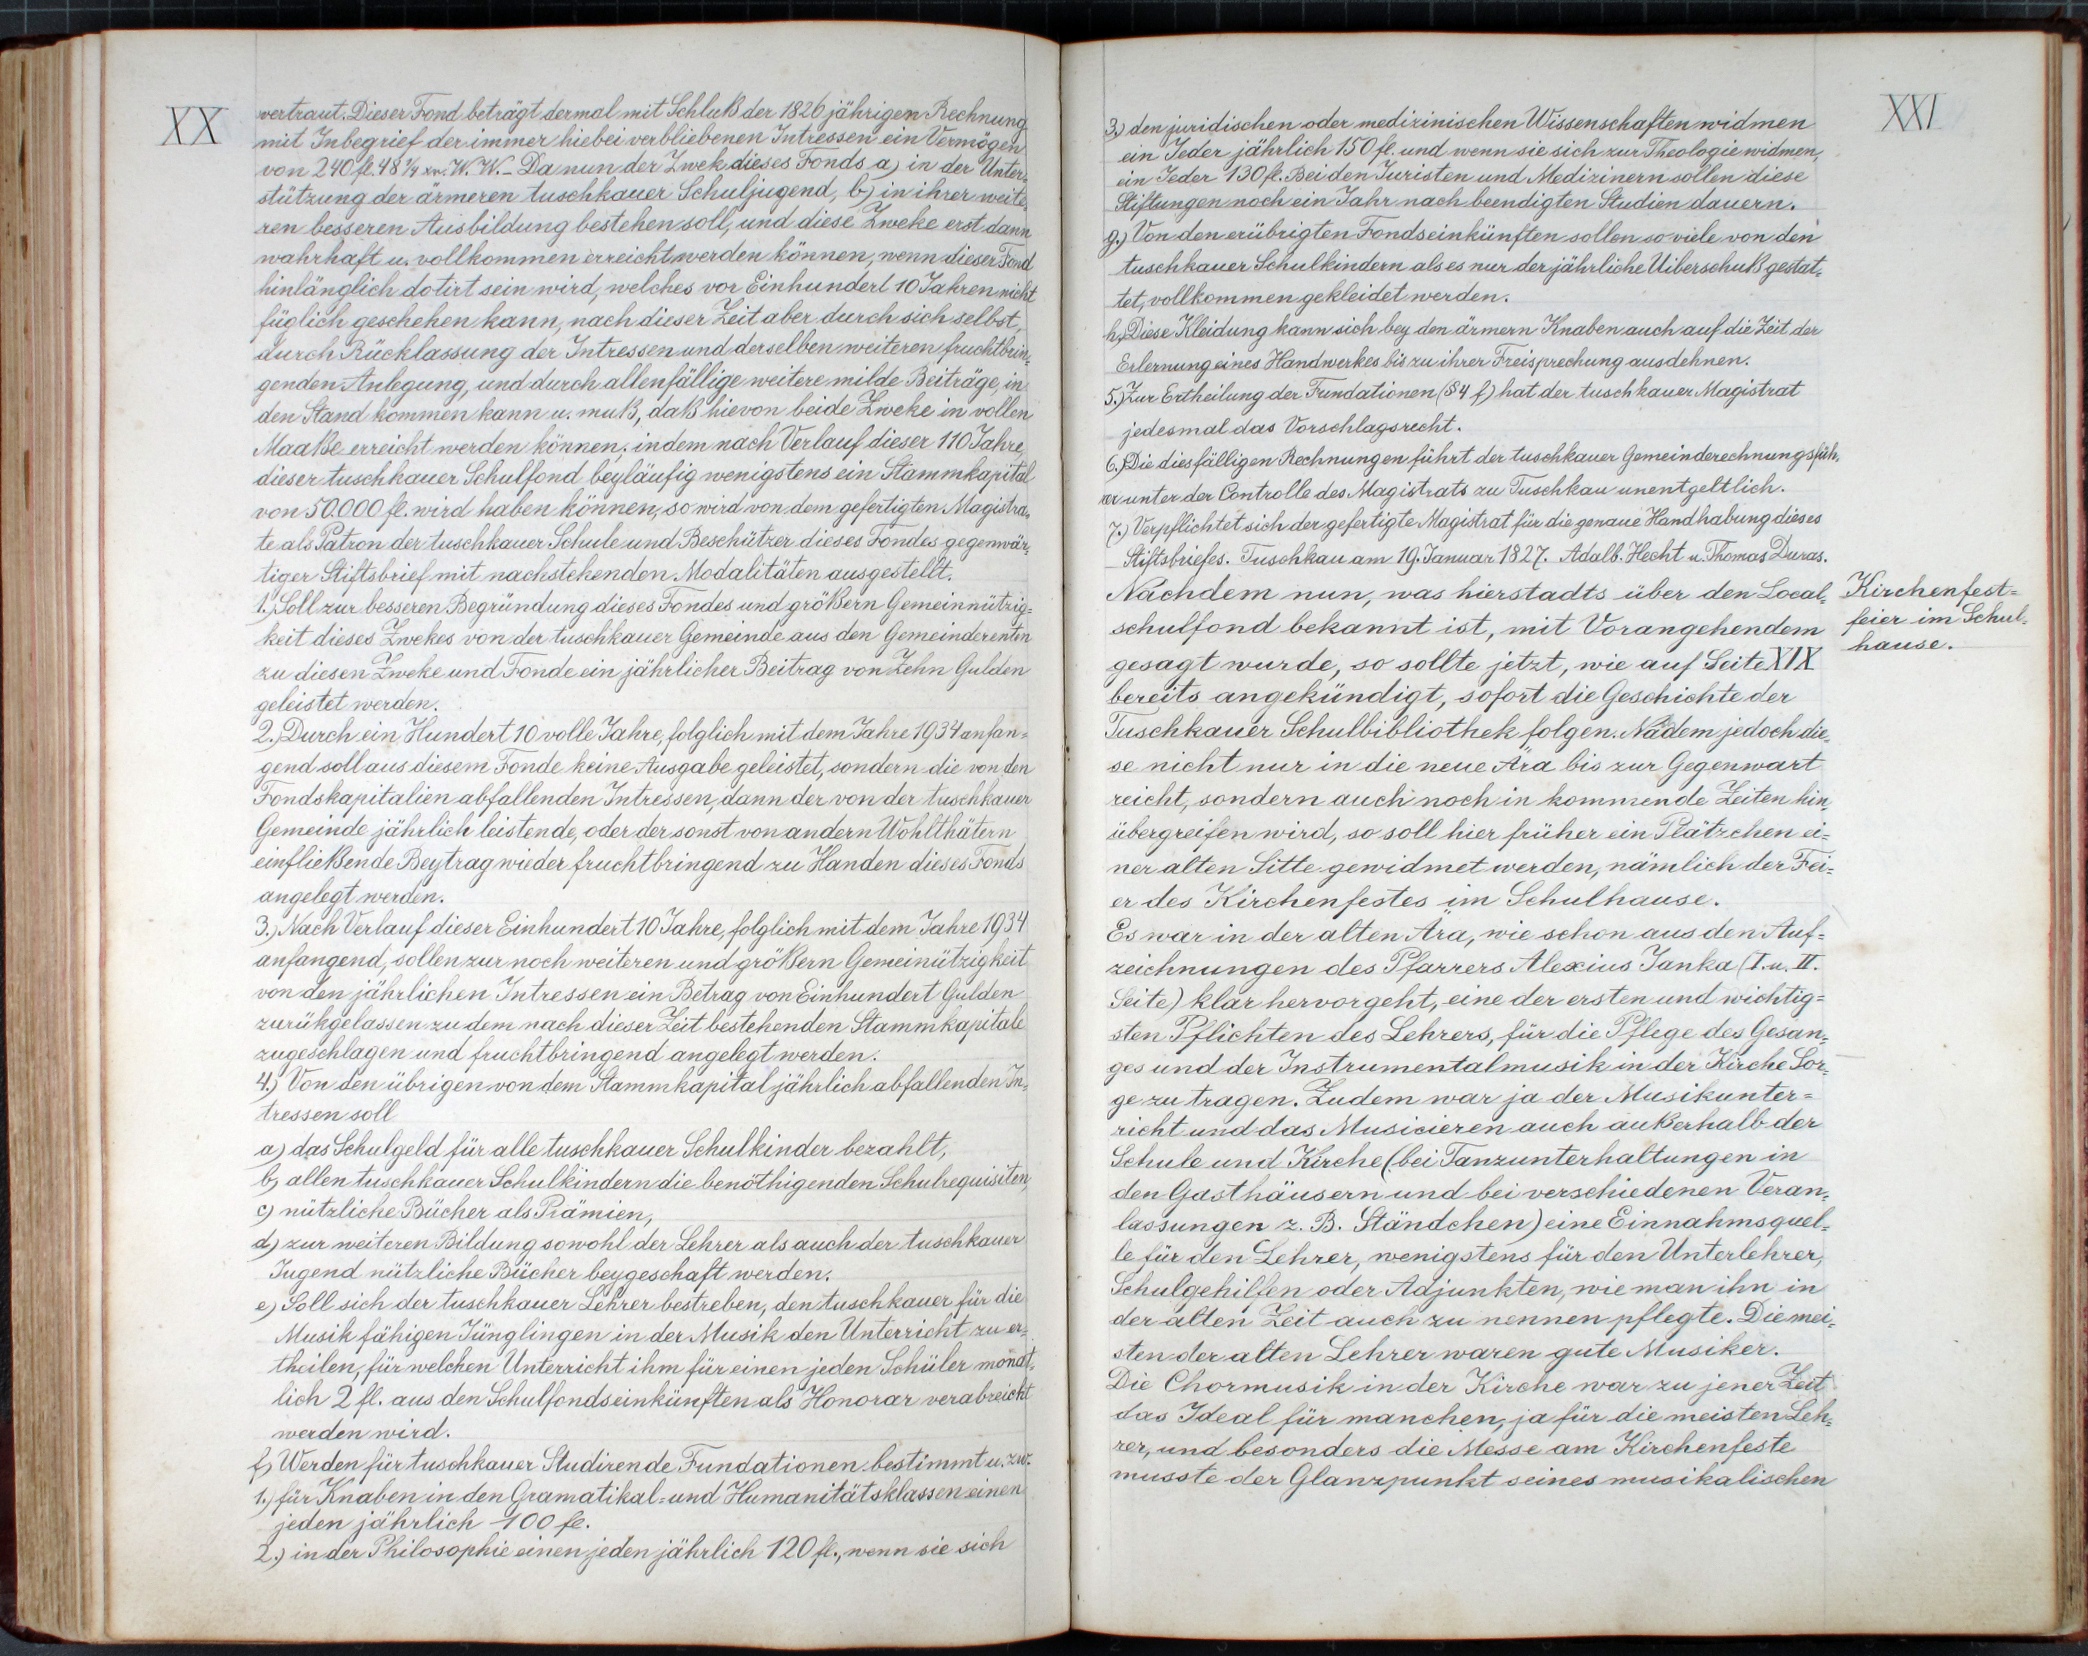 XX
vertraut. Dieser Fond beträgt dermal mit Schluß der 1826 jährigen Rechnung
mit Inbegrief der immer hiebei verbliebenen Intressen ein Vermögen
von 240 fl. 48 1/4 xr. W. W. – Da nun der Zwek dieses Fonds a) in der Unter-
stützung der ärmeren tuschkauer Schuljugend, b) in ihrer weite-
ren besseren Ausbildung bestehen soll, und diese Zweke erst dann
wahrhaft u. vollkommen erreicht werden können, wenn dieser Fond
hinlänglich dotirt sein wird, welches vor Einhundert 10 Jahren nicht
füglich geschehen kann, nach dieser Zeit aber durch sich selbst,
durch Rücklassung der Intressen und derselben weiteren fruchtbrin-
genden Anlegung, und durch allenfällige weitere milde Beiträge, in
den Stand kommen kann u. muß, daß hievon beide Zweke in vollen
Maaße erreicht werden können; indem nach Verlauf dieser 110 Jahre,
dieser tuschkauer Schulfond beyläufig wenigstens ein Stammkapital
von 50.000 fl. wird haben können, so wird von dem gefertigten Magistra-
te als Patron der tuschkauer Schule und Beschützer dieses Fondes gegenwär-
tiger Stiftsbrief mit nachstehenden Modalitäten ausgestellt.
1.) Soll zur besseren Begründung dieses Fondes und größern Gemeinnützig=
keit dieses Zwekes von der tuschkauer Gemeinde aus den Gemeinderenten
zu diesen Zweke und Fonde ein jährlicher Beitrag von Zehn Gulden
geleistet werden.
2.) Durch ein Hundert 10 volle Jahre, folglich mit dem Jahre 1934 anfan=
gend soll aus diesem Fonde keine Ausgabe geleistet, sondern die von den
Fondskapitalien abfallenden Intressen, dann der von der tuschkauer
Gemeinde jährlich leistende, oder der sonst von andern Wohlthätern
einfließende Beytrag wieder fruchtbringend zu Handen dieses Fonds
angelegt werden.
3.) Nach Verlauf dieser Einhundert 10 Jahre, folglich mit dem Jahre 1934
anfangend, sollen zur noch weiteren und größern Gemeinützigkeit
von den jährlichen Intressen ein Betrag von Einhundert Gulden
zurükgelassen zu dem nach dieser Zeit bestehenden Stammkapitale
zugeschlagen und fruchtbringend angelegt werden.
4.) Von den übrigen von dem Stammkapital jährlich abfallenden In-
tressen soll
a) das Schulgeld für alle tuschkauer Schulkinder bezahlt,
b) allen tuschkauer Schulkindern die benöthigenden Schulrequisiten,
c) nützliche Bücher als Prämien,
d) zur weiteren Bildung sowohl der Lehrer als auch der tuschkauer
Jugend nützliche Bücher beygeschaft werden.
e) Soll sich der tuschkauer Lehrer bestreben, den tuschkauer für die
Musik fähigen Jünglingen in der Musik den Unterricht zu er-
theilen, für welchen Unterricht ihm für einen jeden Schüler monat-
lich 2 fl. aus den Schulfondseinkünften als Honorar verabreicht
werden wird.
f) Werden für tuschkauer Studirende Fundationen bestimmt u. zw.
1.) für Knaben in den Gramatikal- und Humanitätsklassen einen
jeden jährlich 100 fl.
2.) in der Philosophie einen jeden jährlich 120 fl., wenn sie sich
XXI
3.) den juridischen oder medizinischen Wissenschaften widmen
ein Jeder jährlich 150 fl. und wenn sie sich zur Theologie widmen,
ein Jeder 130 fl. Bei den Juristen und Medizinern sollen diese
Stiftungen noch ein Jahr nach beendigten Studien dauern.
g.) Von den erübrigten Fondseinkünften sollen so viele von den
tuschkauer Schulkindern als es nur der jährliche Uiberschuß gestat-
tet, vollkommen gekleidet werden.
h.) Diese Kleidung kann sich bey den ärmern Knaben auch auf die Zeit der
Erlernung eines Handwerkes bis zu ihrer Freisprechung ausdehnen.
5.) Zur Ertheilung der Fundationen (§ 4 f) hat der tuschkauer Magistrat
jedesmal das Vorschlagsrecht.
6.) Die diesfälligen Rechnungen führt der tuschkauer Gemeinderechnungsfüh-
rer unter der Controlle des Magistrats zu Tuschkau unentgeltlich.
7.) Verpflichtet sich der gefertigte Magistrat für die genaue Handhabung dieses
Stiftsbriefes. Tuschkau am 19. Januar 1827. Adalb. Hecht u. Thomas Duras.
Nachdem nun, was hierstadts über den Local-
schulfond bekannt ist, mit Vorangehendem
gesagt wurde, so sollte jetzt, wie auf Seite XIX
bereits angekündigt, sofort die Geschichte der
Tuschkauer Schulbibliothek folgen. Nadem jedoch die-
se nicht nur in die neue Ära bis zur Gegenwart
reicht, sondern auch noch in kommende Zeiten hin-
übergreifen wird, so soll hier früher ein Plätzchen ei=
ner alten Sitte gewidmet werden, nämlich der Fei=
er des Kirchenfestes im Schulhause.
Es war in der alten Ära, wie schon aus den Auf=
zeichnungen des Pfarrers Alexius Janka (I. u. II.
Seite) klar hervorgeht, eine der ersten und wichtig=
sten Pflichten des Lehrers, für die Pflege des Gesan-
ges und der Instrumentalmusik in der Kirche Sor-
ge zu tragen. Zudem war ja der Musikunter=
richt und das Musicieren auch außerhalb der
Schule und Kirche (bei Tanzunterhaltungen in
den Gasthäusern und bei verschiedenen Veran-
lassungen z. B. Ständchen) eine Einnahmsquel-
le für den Lehrer, wenigstens für den Unterlehrer,
Schulgehilfen oder Adjunkten, wie man ihn in
der alten Zeit auch zu nennen pflegte. Die mei-
sten der alten Lehrer waren gute Musiker.
Die Chormusik in der Kirche war zu jener Zeit
das Ideal für manchen, ja für die meisten Leh-
rer, und besonders die Messe am Kirchenfeste
musste der Glanzpunkt seines musikalischen
Kirchenfest=
feier im Schul-
hause.